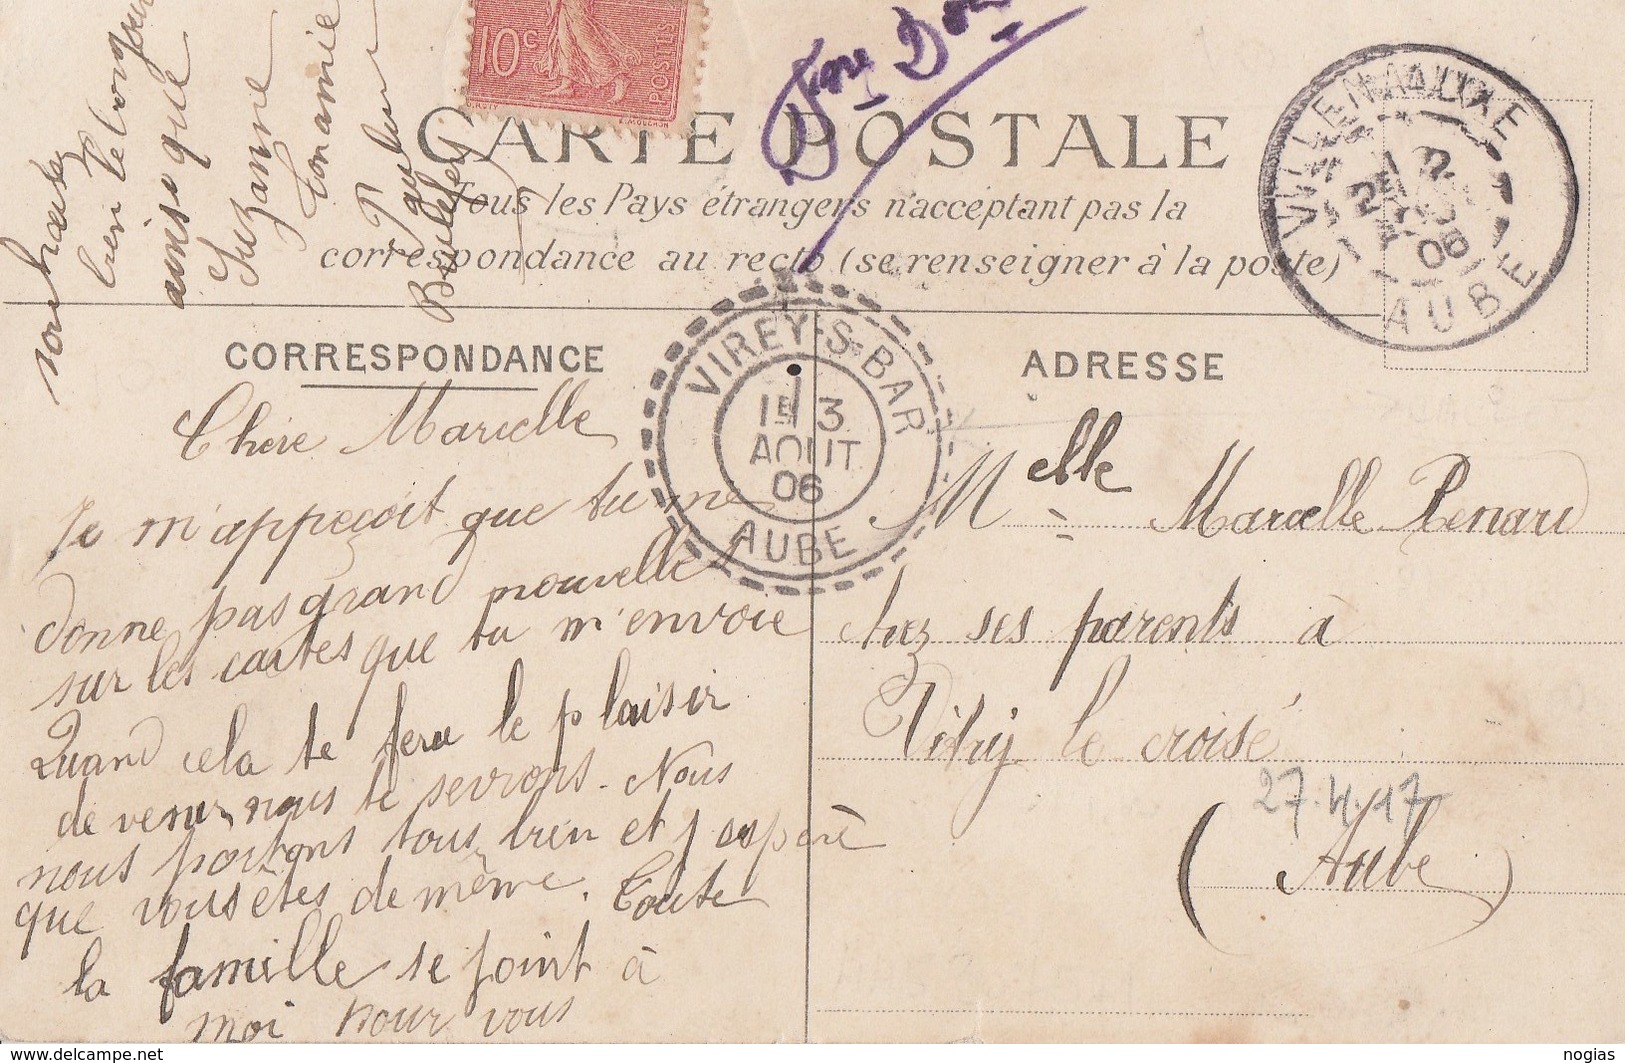 10c
POSTES
CARTE POSTALE
Tous les Pays étrangers n'acceptent pas la
correspondance au recto (se renseigner à la poste)
VILLENAUXE
12
06
AUBE
VIREY-S-BAR
1E 3
AOUT
06
AUBE
CORRESPONDANCE
Chère Marcelle
Je m'appeçoit que tu me
donne pas grand nouvelle
sur les cartes que tu m'envoie
Quand cela te fera le plaisir
de venir nous te serrons. Nous
nous portons tous bien et j'espère
que vous êtes de même. Toute
la famille se joint à
moi pour vous
souhaiter
bien le bonjour
ainsi que
Suzanne
ton amie
ADRESSE
Melle Marcelle Renard
chez ses parents à
Vitry le croisé
27.4.17
(Aube)
www.delcampe.net
nogias